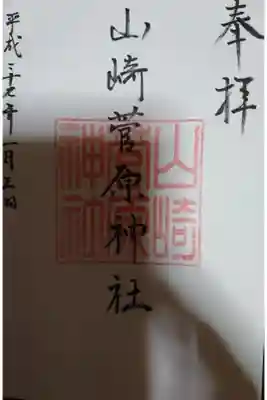 奉拝
山崎菅原神社
山崎菅原神社
平成二十七年一月三日